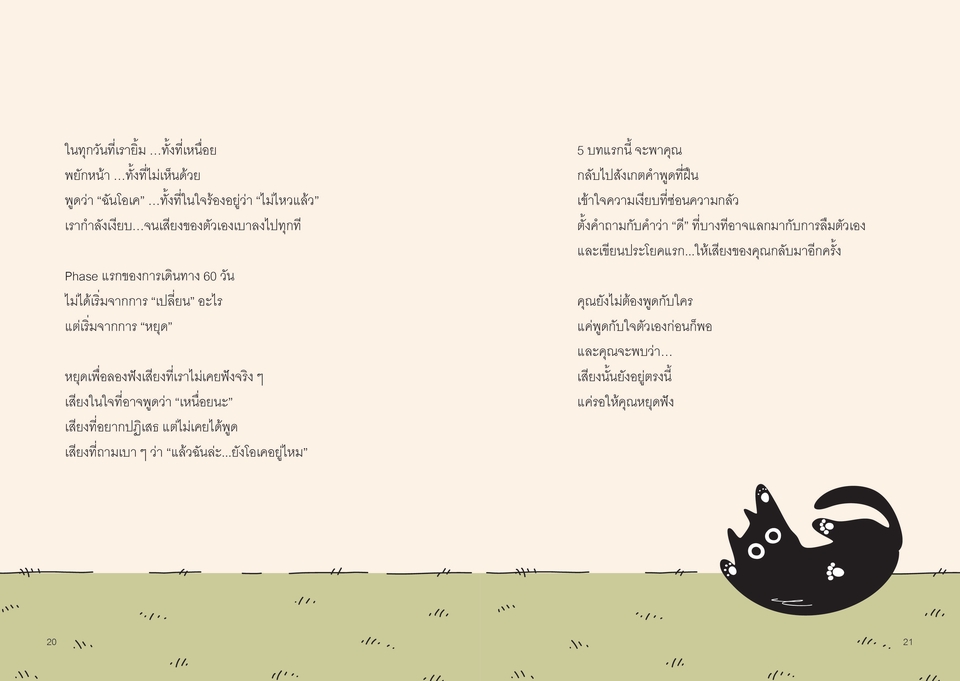 ในทุกวันที่เรายิ้ม …ทั้งที่เหนื่อย
พยักหน้า …ทั้งที่ไม่เห็นด้วย
พูดว่า “ฉันโอเค” …ทั้งที่ในใจร้องอยู่ว่า “ไม่ไหวแล้ว”
เรากำลังเงียบ…จนเสียงของตัวเองเบาลงไปทุกที
Phase แรกของการเดินทาง 60 วัน
ไม่ได้เริ่มจากการ “เปลี่ยน” อะไร
แต่เริ่มจากการ “หยุด”
หยุดเพื่อลองฟังเสียงที่เราไม่เคยฟังจริง ๆ
เสียงในใจที่อาจพูดว่า “เหนื่อยนะ”
เสียงที่อยากปฏิเสธ แต่ไม่เคยได้พูด
เสียงที่ถามเบา ๆ ว่า “แล้วฉันล่ะ...ยังโอเคอยู่ไหม”
20
5 บทแรกนี้ จะพาคุณ
กลับไปสังเกตคำพูดที่ฝืน
เข้าใจความเงียบที่ซ่อนความกลัว
ตั้งคำถามกับคำว่า “ดี” ที่บางทีอาจแลกมากับการลืมตัวเอง
และเขียนประโยคแรก...ให้เสียงของคุณกลับมาอีกครั้ง
คุณยังไม่ต้องพูดกับใคร
แค่พูดกับใจตัวเองก่อนก็พอ
และคุณจะพบว่า…
เสียงนั้นยังอยู่ตรงนี้
แค่รอให้คุณหยุดฟัง
21